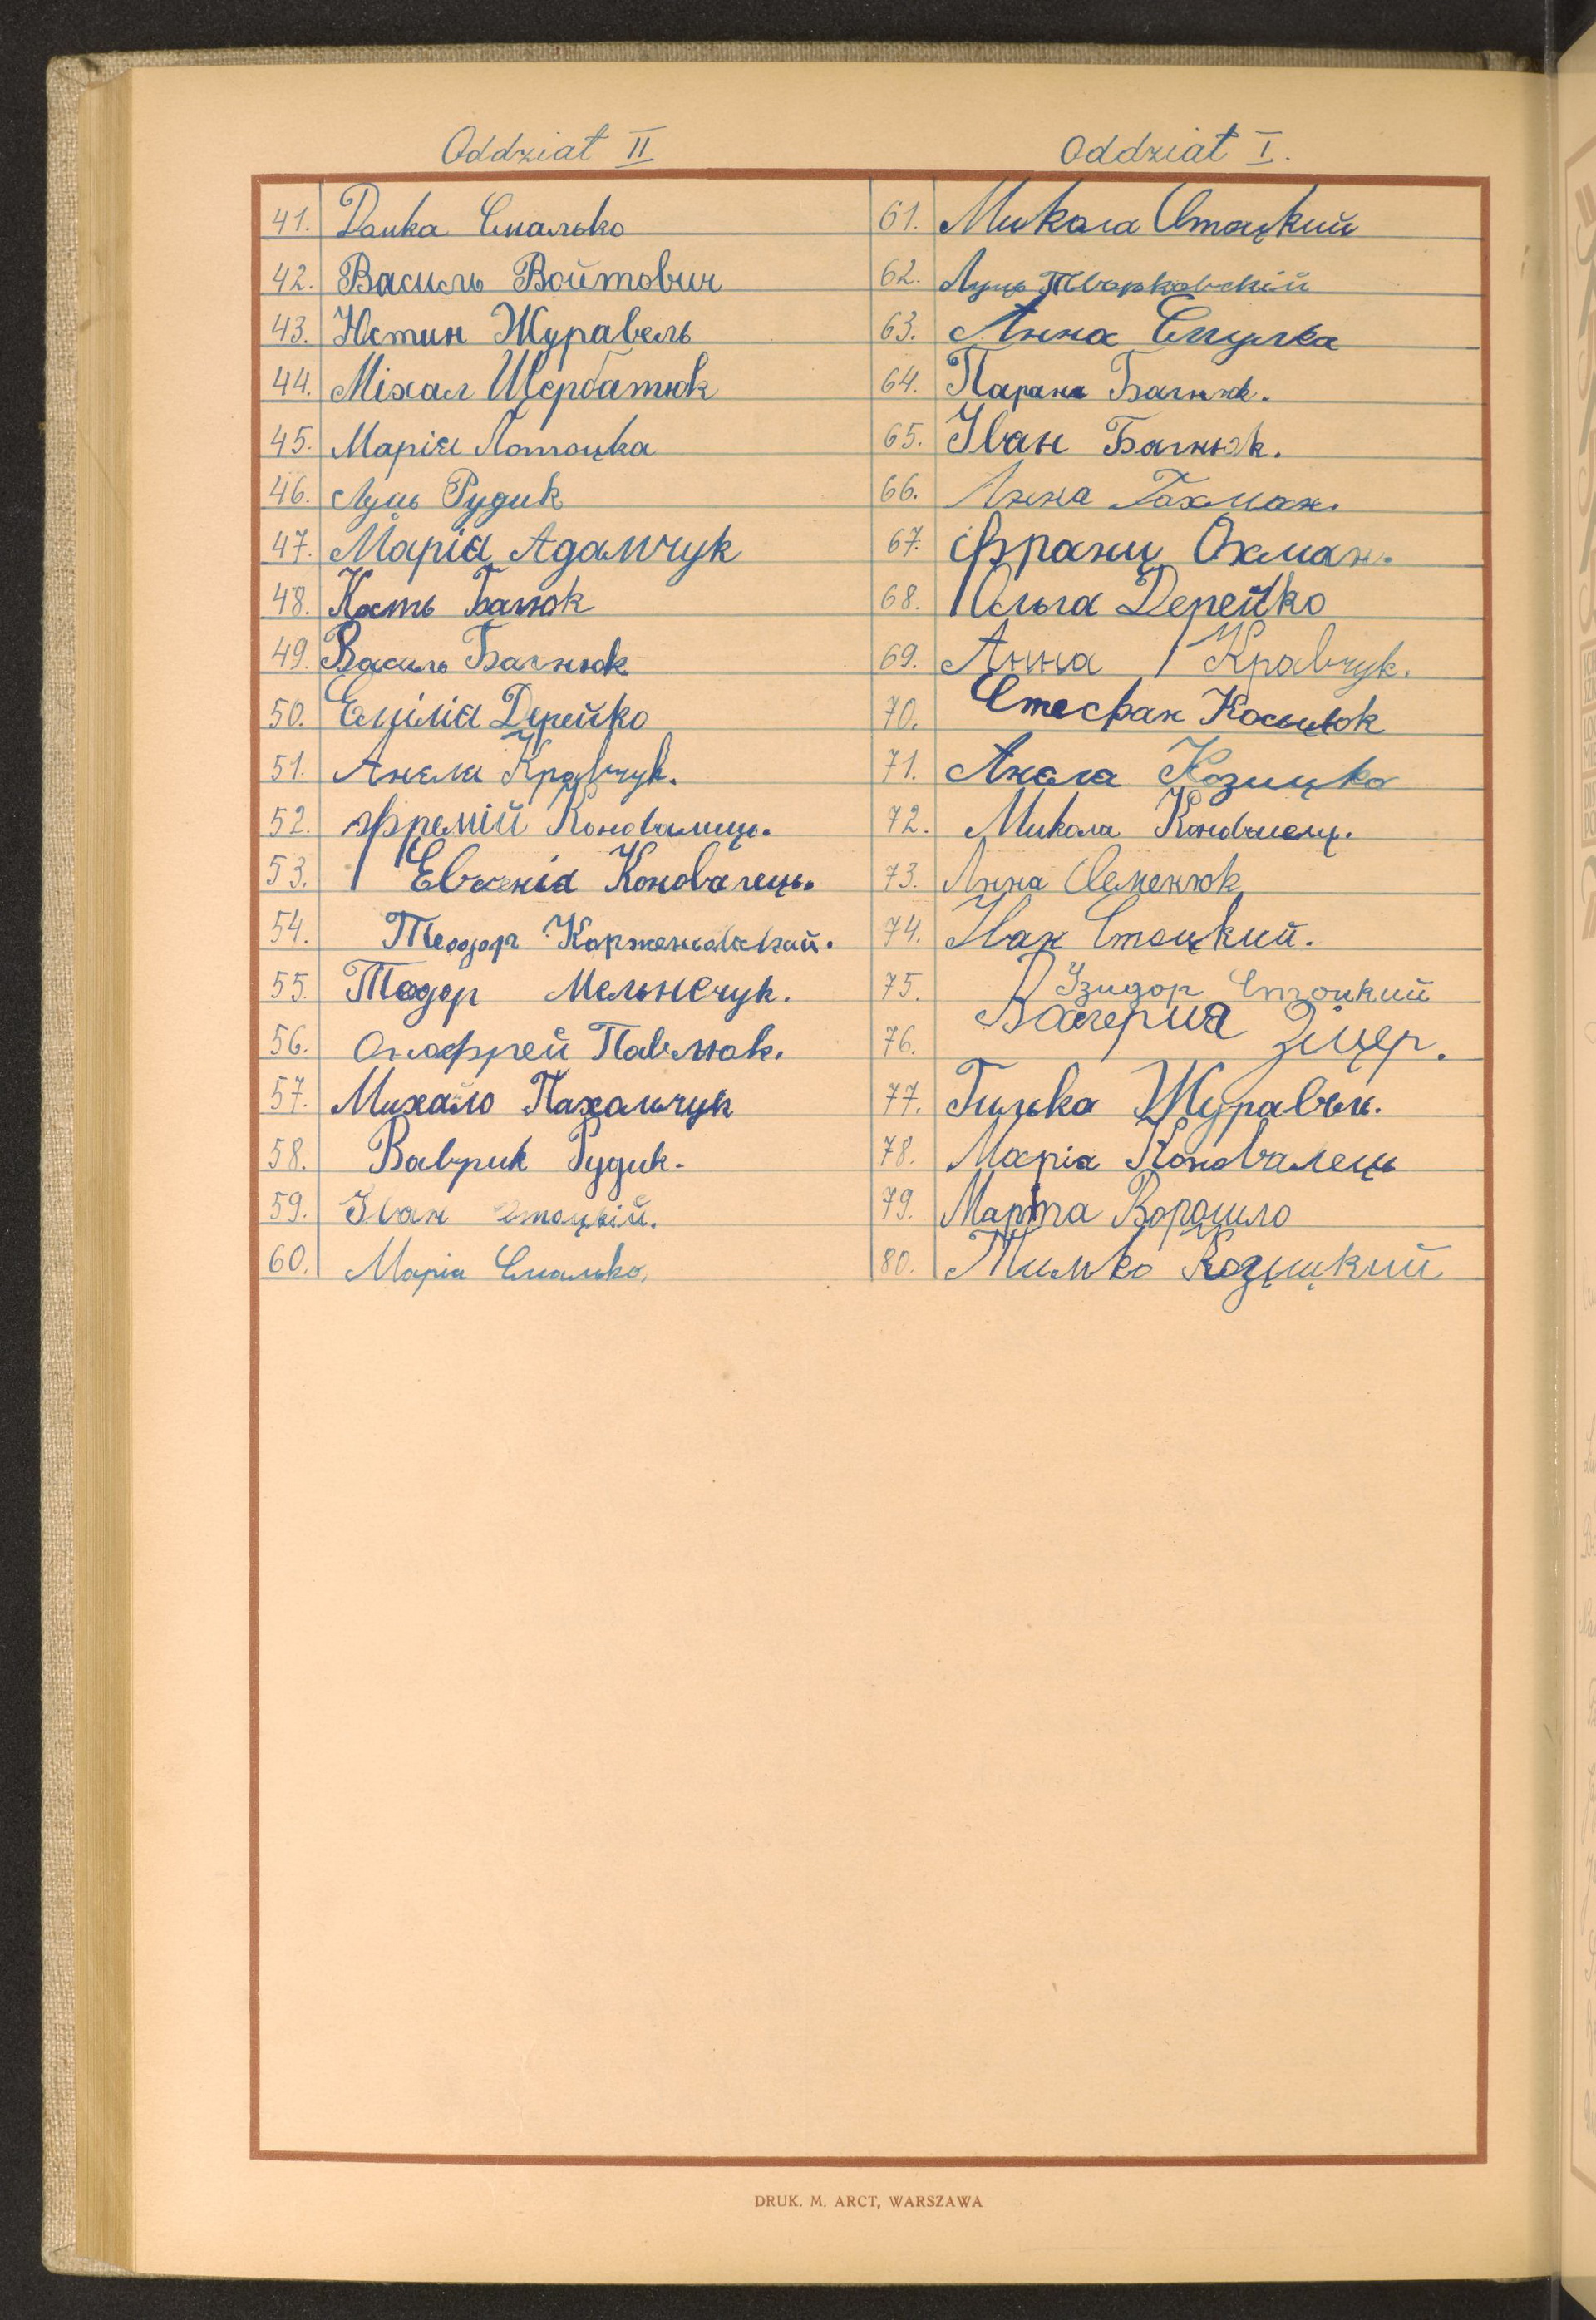 Oddział II
41. Данка Смалько
42. Василь Войтович
43. Юстин Журавель
44. Міхал Щербатюк
45. Марія Потоцка
46. Луць Рудик
47. Марія Адамчук
48. Кость Багнюк
49. Василь Багнюк
50. Емілія Дерейко
51. Анеля Кравчук.
52. Коновалець.
53. Евгенія Коновалець.
54. Теодор Корженьовский.
55. Тодор Мельнечук.
56. Онофрей Павлюк.
57. Михайло Пахальчук
58. Ваврик Рудик.
59. Іван Стоцкій.
60. Марія Смалько,
Oddział I.
61. Микола Стоцкий
62. Луць
63. Анна
64. Парана Багнюк.
65. Іван Багнюк.
66. Анна Гахман.
67. Франц Охман.
68. Ольга Дерейко
69. Анна Кравчук.
70. Стефан
71. Анеля Козицка
72. Микола Коновалец.
73. Анна Семенюк
74. Іван Стоцкий.
75. Ізидор Стоцкий
76. Валерия
77. Гилька Журавель.
78. Марія Коновалець
79. Марта Ворошило
80. Тимко Козицкий
DRUK. M. ARCT, WARSZAWA